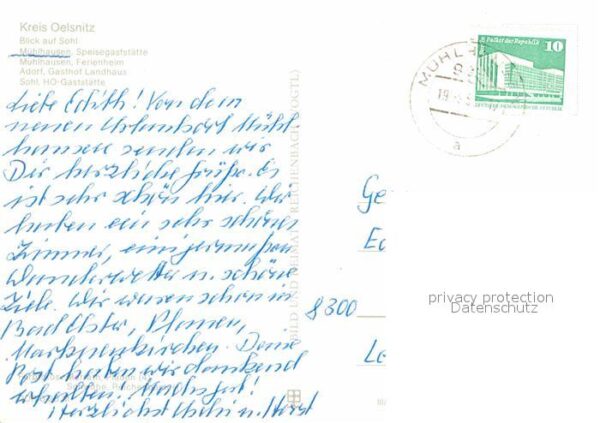 Kreis Oelsnitz
Blick auf Sohl
Mühlhausen, Speisegaststätte
Mühlhausen, Ferienheim
Adorf, Gasthof Landhaus
Sohl, HO-Gaststätte
Liebe Edith! Von dem
neuen Urlaubsort Mühl
hausen senden wir
Dir herzliche Grüße. Es
ist sehr schön hier. Wir
haben ein sehr schönes
Zimmer,
Wanderwetter u. schöne
Ziele. Wir waren schon in
Bad Elster, Plauen,
Markneukirchen. Deine
Post haben wir dankend
erhalten!
Herzlichst u. Horst
BILD UND HEIMAT REICHENBACH (VOGTL)
MÜHLH
19
a
Palast der Republik
10
Ge
8300
privacy protection
Datenschutz